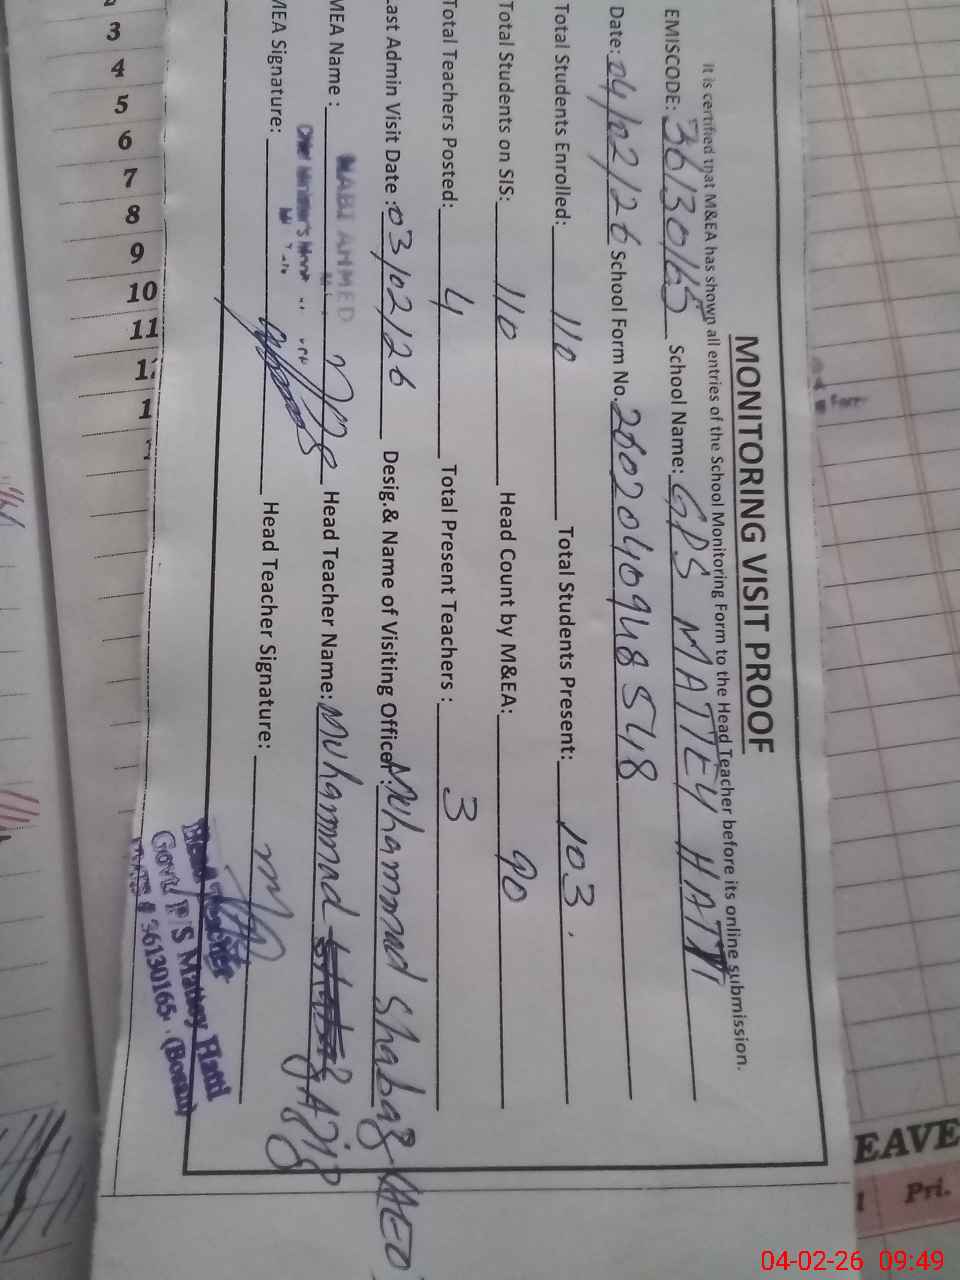 MONITORING VISIT PROOF
It is certified that M&EA has shown all entries of the School Monitoring Form to the Head Teacher before its online submission.
EMISCODE: 36130165 School Name: GPS MATTEY HATTI
Date: 04/02/26 School Form No. 2602040948548
Total Students Enrolled: 110 Total Students Present: 103
Total Students on SIS: 110 Head Count by M&EA: 90
Total Teachers Posted: 4 Total Present Teachers : 3
Last Admin Visit Date : 03/02/26 Desig.& Name of Visiting Officer : Muhammad Shabaz (AEO
MEA Name : NABI AHMED Head Teacher Name: Muhammad Aziz
MEA Signature: Head Teacher Signature:
Head Teacher
Govt. P S Mattey Hatti
36130165 (Bosan)
3
4
5
6
7
8
9
10
11
EAVE
Pri.
04-02-26 09:49